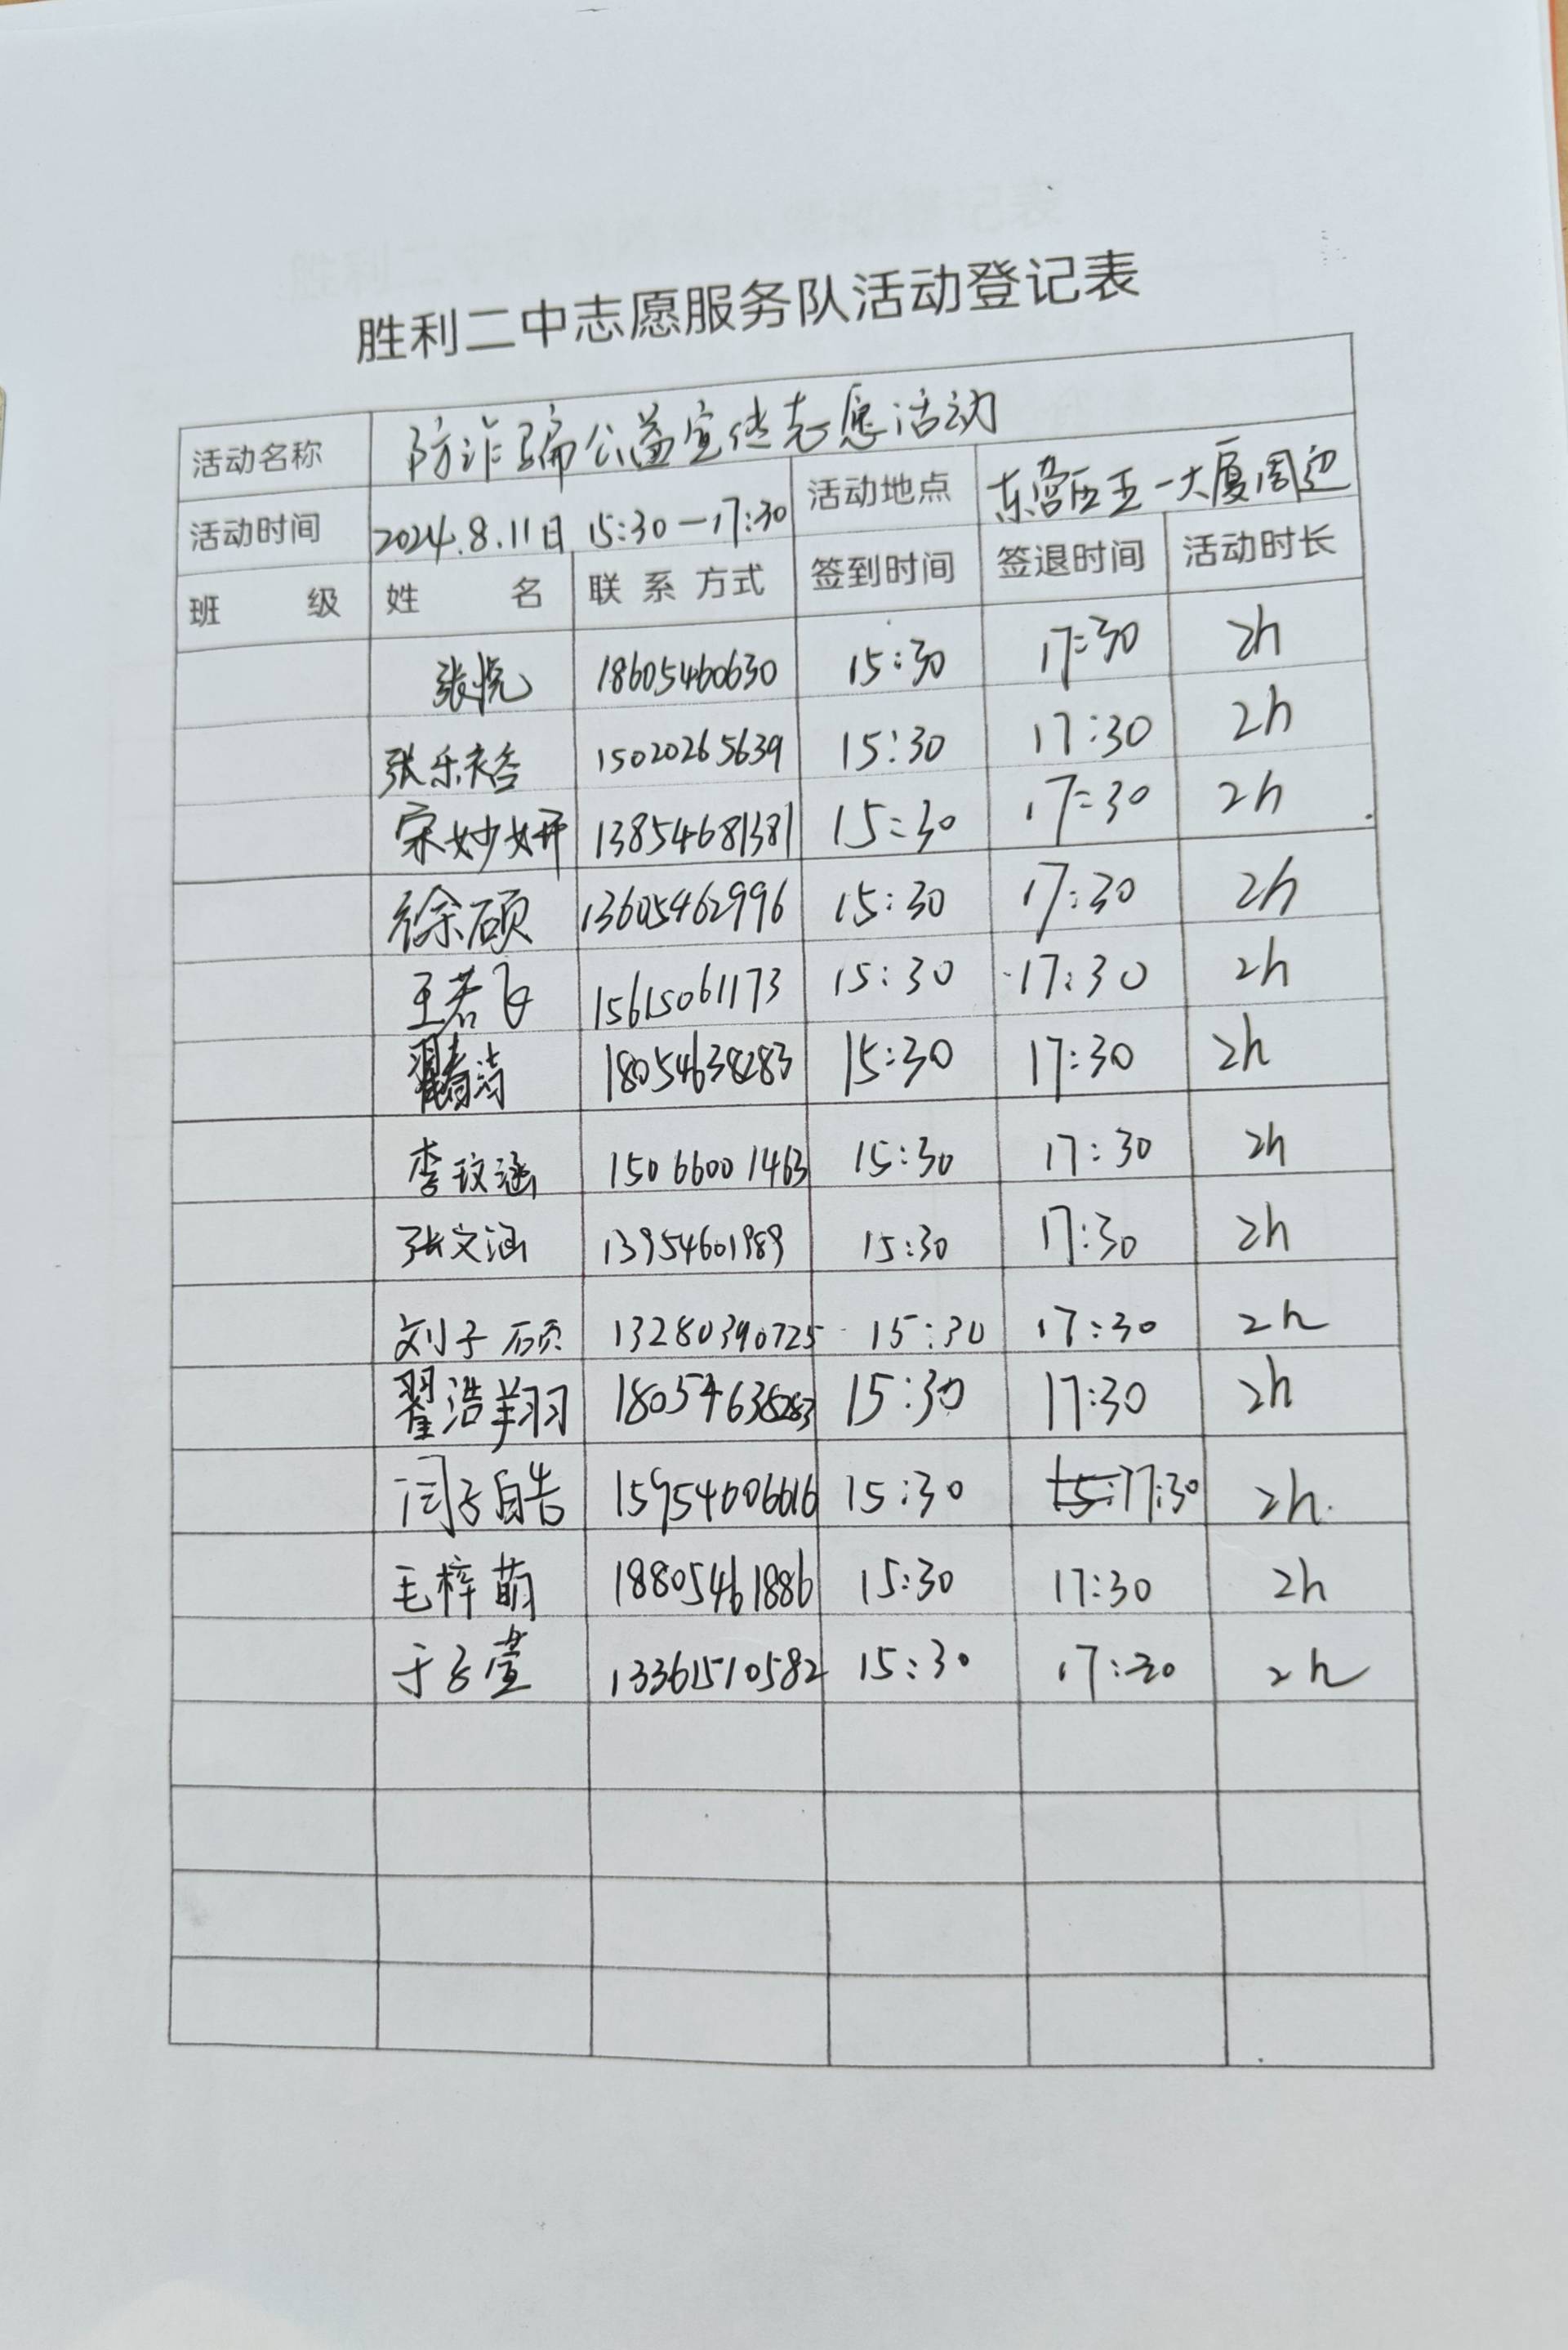 胜利二中志愿服务队活动登记表
活动名称 防诈骗公益宣传志愿活动
活动时间 2024.8.11日 15:30—17:30 活动地点 东营区五一大厦周边
班 级 姓 名 联系方式 签到时间 签退时间 活动时长
张悦 18605460630 15:30 17:30 2h
张乐 15020265639 15:30 17:30 2h
宋妙妍 13854681381 15:30 17:30 2h
徐硕 13605462996 15:30 17:30 2h
王若飞 15615061173 15:30 17:30 2h
18054638283 15:30 17:30 2h
李玟涵 15066001463 15:30 17:30 2h
张文涵 13954601989 15:30 17:30 2h
刘子硕 13280390725 15:30 17:30 2h
翟浩翔 18054638283 15:30 17:30 2h
闫子皓 15954606616 15:30 17:30 2h.
毛梓萌 18805461886 15:30 17:30 2h
于子萱 13361510582 15:30 17:30 2h